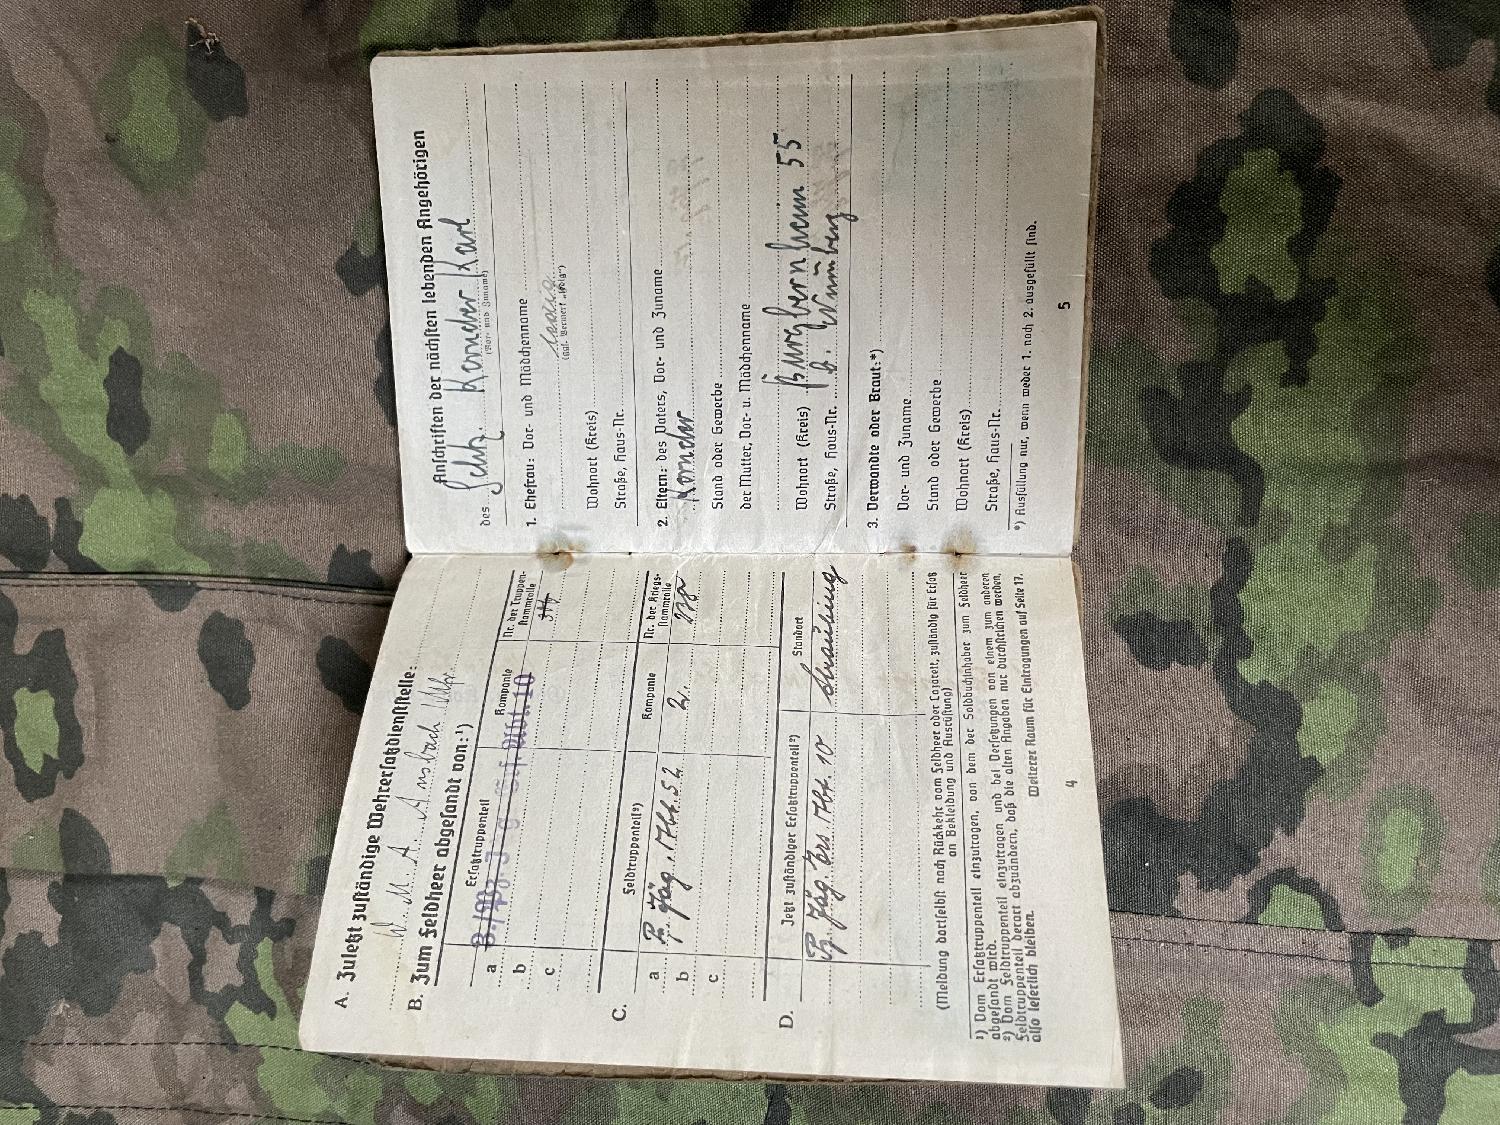 A. Zuletzt zuständige Wehrersatzdienststelle:
W. M. A. Ansbach
B. Zum Feldheer abgesandt von:¹)
Ersatztruppenteil Kompanie Nr. der Truppen-Stammrolle
a 3./Pz. Jäg. Ers. Abt. 10
b
c
C.
Feldtruppenteil²) Kompanie Nr. der Kriegs-Stammrolle
a P. Jäg. Abt. 52 2.
b
c
D.
Jetzt zuständiger Ersatztruppenteil²) Standort
Pz. Jäg. Ers. Abt. 10 Straubing
(Meldung dortselbst nach Rückkehr vom Feldheer oder Lazarett, zuständig für Ersatz
an Bekleidung und Ausrüstung)
¹) Vom Ersatztruppenteil einzutragen, von dem der Soldbuchinhaber zum Feldheer
abgesandt wird.
²) Vom Feldtruppenteil einzutragen und bei Versetzungen von einem zum anderen
Feldtruppenteil derart abzuändern, daß die alten Angaben nur durchstrichen werden,
also leserlich bleiben.
Weiterer Raum für Eintragungen auf Seite 17.
4
Anschriften der nächsten lebenden Angehörigen
des Schtz. Korncher Karl
(Vor- und Zuname)
1. Ehefrau: Vor- und Mädchenname
ledig
(ggf. Vermerk „ledig“)
Wohnort (Kreis)
Straße, Haus-Nr.
2. Eltern: des Vaters, Vor- und Zuname
Korncher
Stand oder Gewerbe
der Mutter, Vor- u. Mädchenname
Wohnort (Kreis) Burgbernheim 55
Straße, Haus-Nr. b. Nürnberg
3. Verwandte oder Braut:*)
Vor- und Zuname
Stand oder Gewerbe
Wohnort (Kreis)
Straße, Haus-Nr.
*) Ausfüllung nur, wenn weder 1. noch 2. ausgefüllt sind.
5